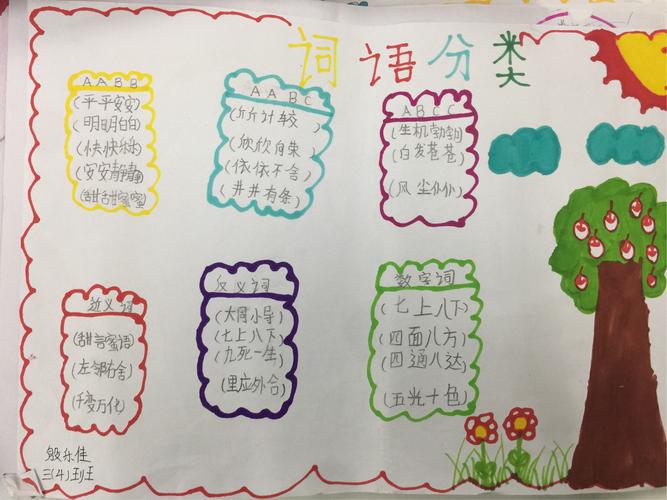 词语分类
AABB
(平平安安)
(明明白白)
(快快乐乐)
(安安静静)
(甜甜蜜蜜)
AABC
(斤斤计较)
(欣欣向荣)
(依依不舍)
(井井有条)
ABCC
(生机勃勃)
(白发苍苍)
(风尘仆仆)
近义词
(甜言蜜语)
(左邻右舍)
(千变万化)
反义词
(大同小异)
(七上八下)
(九死一生)
(里应外合)
数字词
(七上八下)
(四面八方)
(四通八达)
(五光十色)
殷乐佳
三(4)班